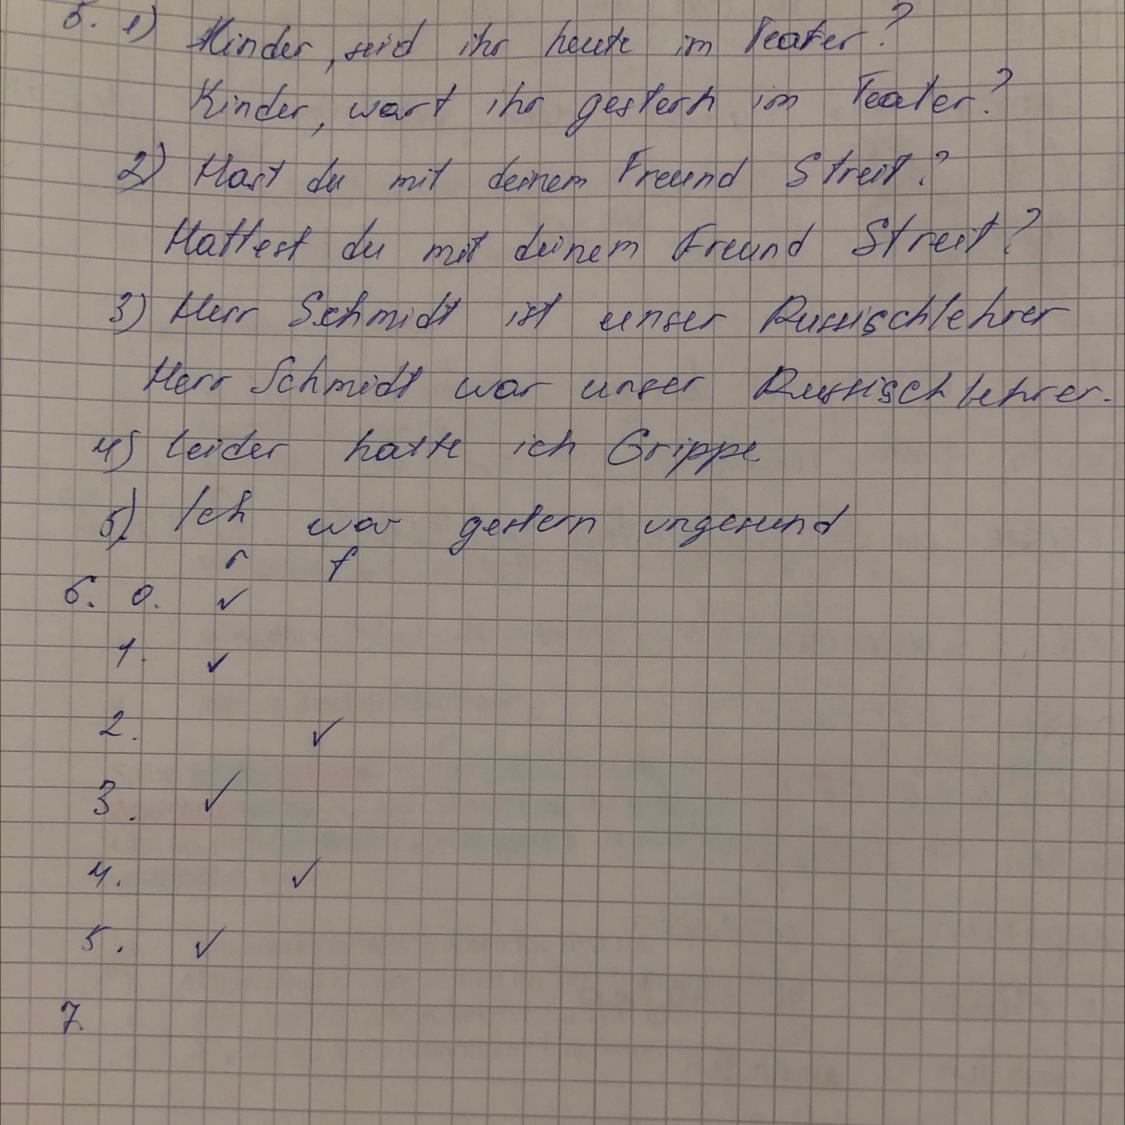 5. 1) Kinder, seid ihr heute im Teater?
Kinder, wart ihr gestern im Teater?
2) Hast du mit deinem Freund Streit?
Hattest du mit deinem Freund Streit?
3) Herr Schmidt ist unser Russischlehrer
Herr Schmidt war unser Russischlehrer.
4) Leider hatte ich Grippe
5) Ich war gestern ungesund
r f
6. 0. ✓
1. ✓
2. ✓
3. ✓
4. ✓
5. ✓
7.